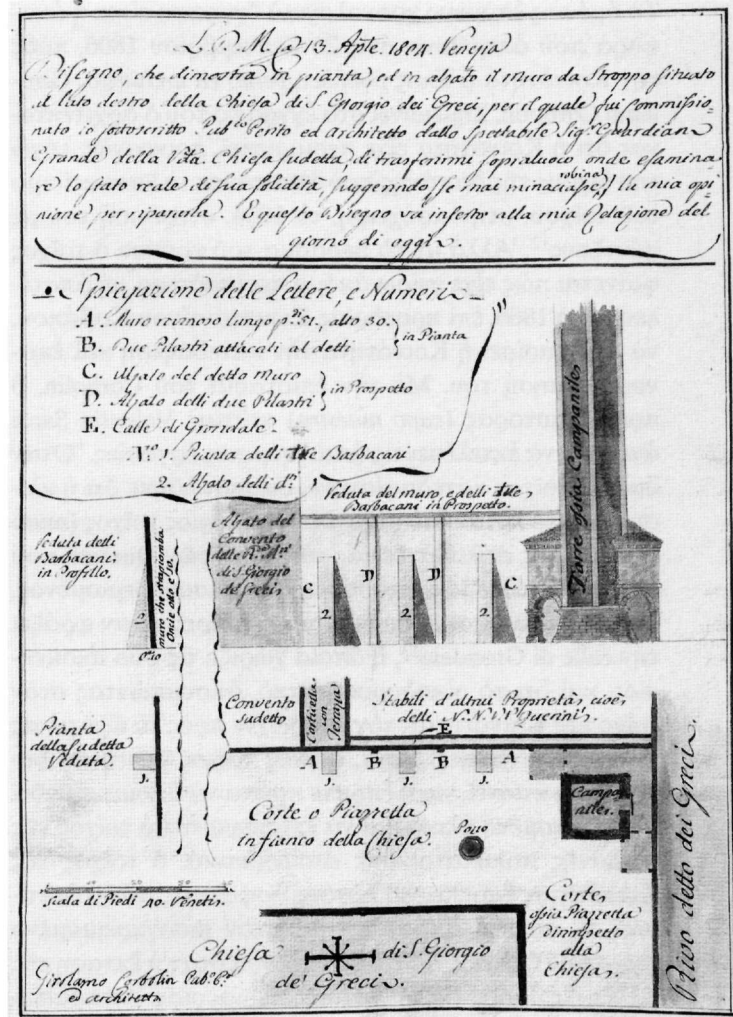 L. D. M. a 13. Aple. 1804. Venezia
Disegno, che dimostra in pianta, ed in alzato il muro da Stroppo situato
al lato destro della Chiesa di S. Giorgio dei Greci, per il quale fui commissio-
nato io sottoscritto Pub.co Perito ed Architetto dallo Spettabile Sig.r Guardian
Grande della Chiesa sudetta, di trasferirmi sopraluoco, onde esamina-
re lo stato reale di sua solidità, suggerindo se mai minaciasse
robina
la mia opi-
nione per ripararla. E questo Disegno va inserto alla mia Relazione del
giorno di oggi.
Spiegazione delle Lettere, e Numeri
A. Muro ruinoso lungo p.di 51. alto 30.
B. Due Pilastri attacati al detti
in Pianta
C. Alzato del detto muro
D. Alzato delli due Pilastri
in Prospetto
E. Calle di Grondale.
N.o 1. Pianta delli Barbacani
2. Alzato delli d.ti
Veduta del muro, e delli
Barbacani in Prospetto.
Torre ossia Campanile
Veduta delli
Barbacani
in Profillo.
muro che strapiomba
Oncie otto e 10.
Alzato del
Convento
delle
di S. Giorgio
de Greci
C
D
D
C
2
2.
2.
2.
Convento
sudetto
Corticella
con
Terrazza
Stabili d'altrui Proprietà, cioè
delli N. N. V. V. Querini.
E
Pianta
della sudetta
Veduta.
A
B
B
A
1.
1.
1.
1.
Campa-
nille.
Corte o Piazzetta
in fianco della Chiesa.
Pozzo
Rivo detto dei Greci.
Scala di Piedi 40. Veneti.
Corte
ossia Piazzetta
dirimpetto
alla
Chiesa.
Chiesa di S. Giorgio
de' Greci.
Girolamo Corbolin
ed Architetto